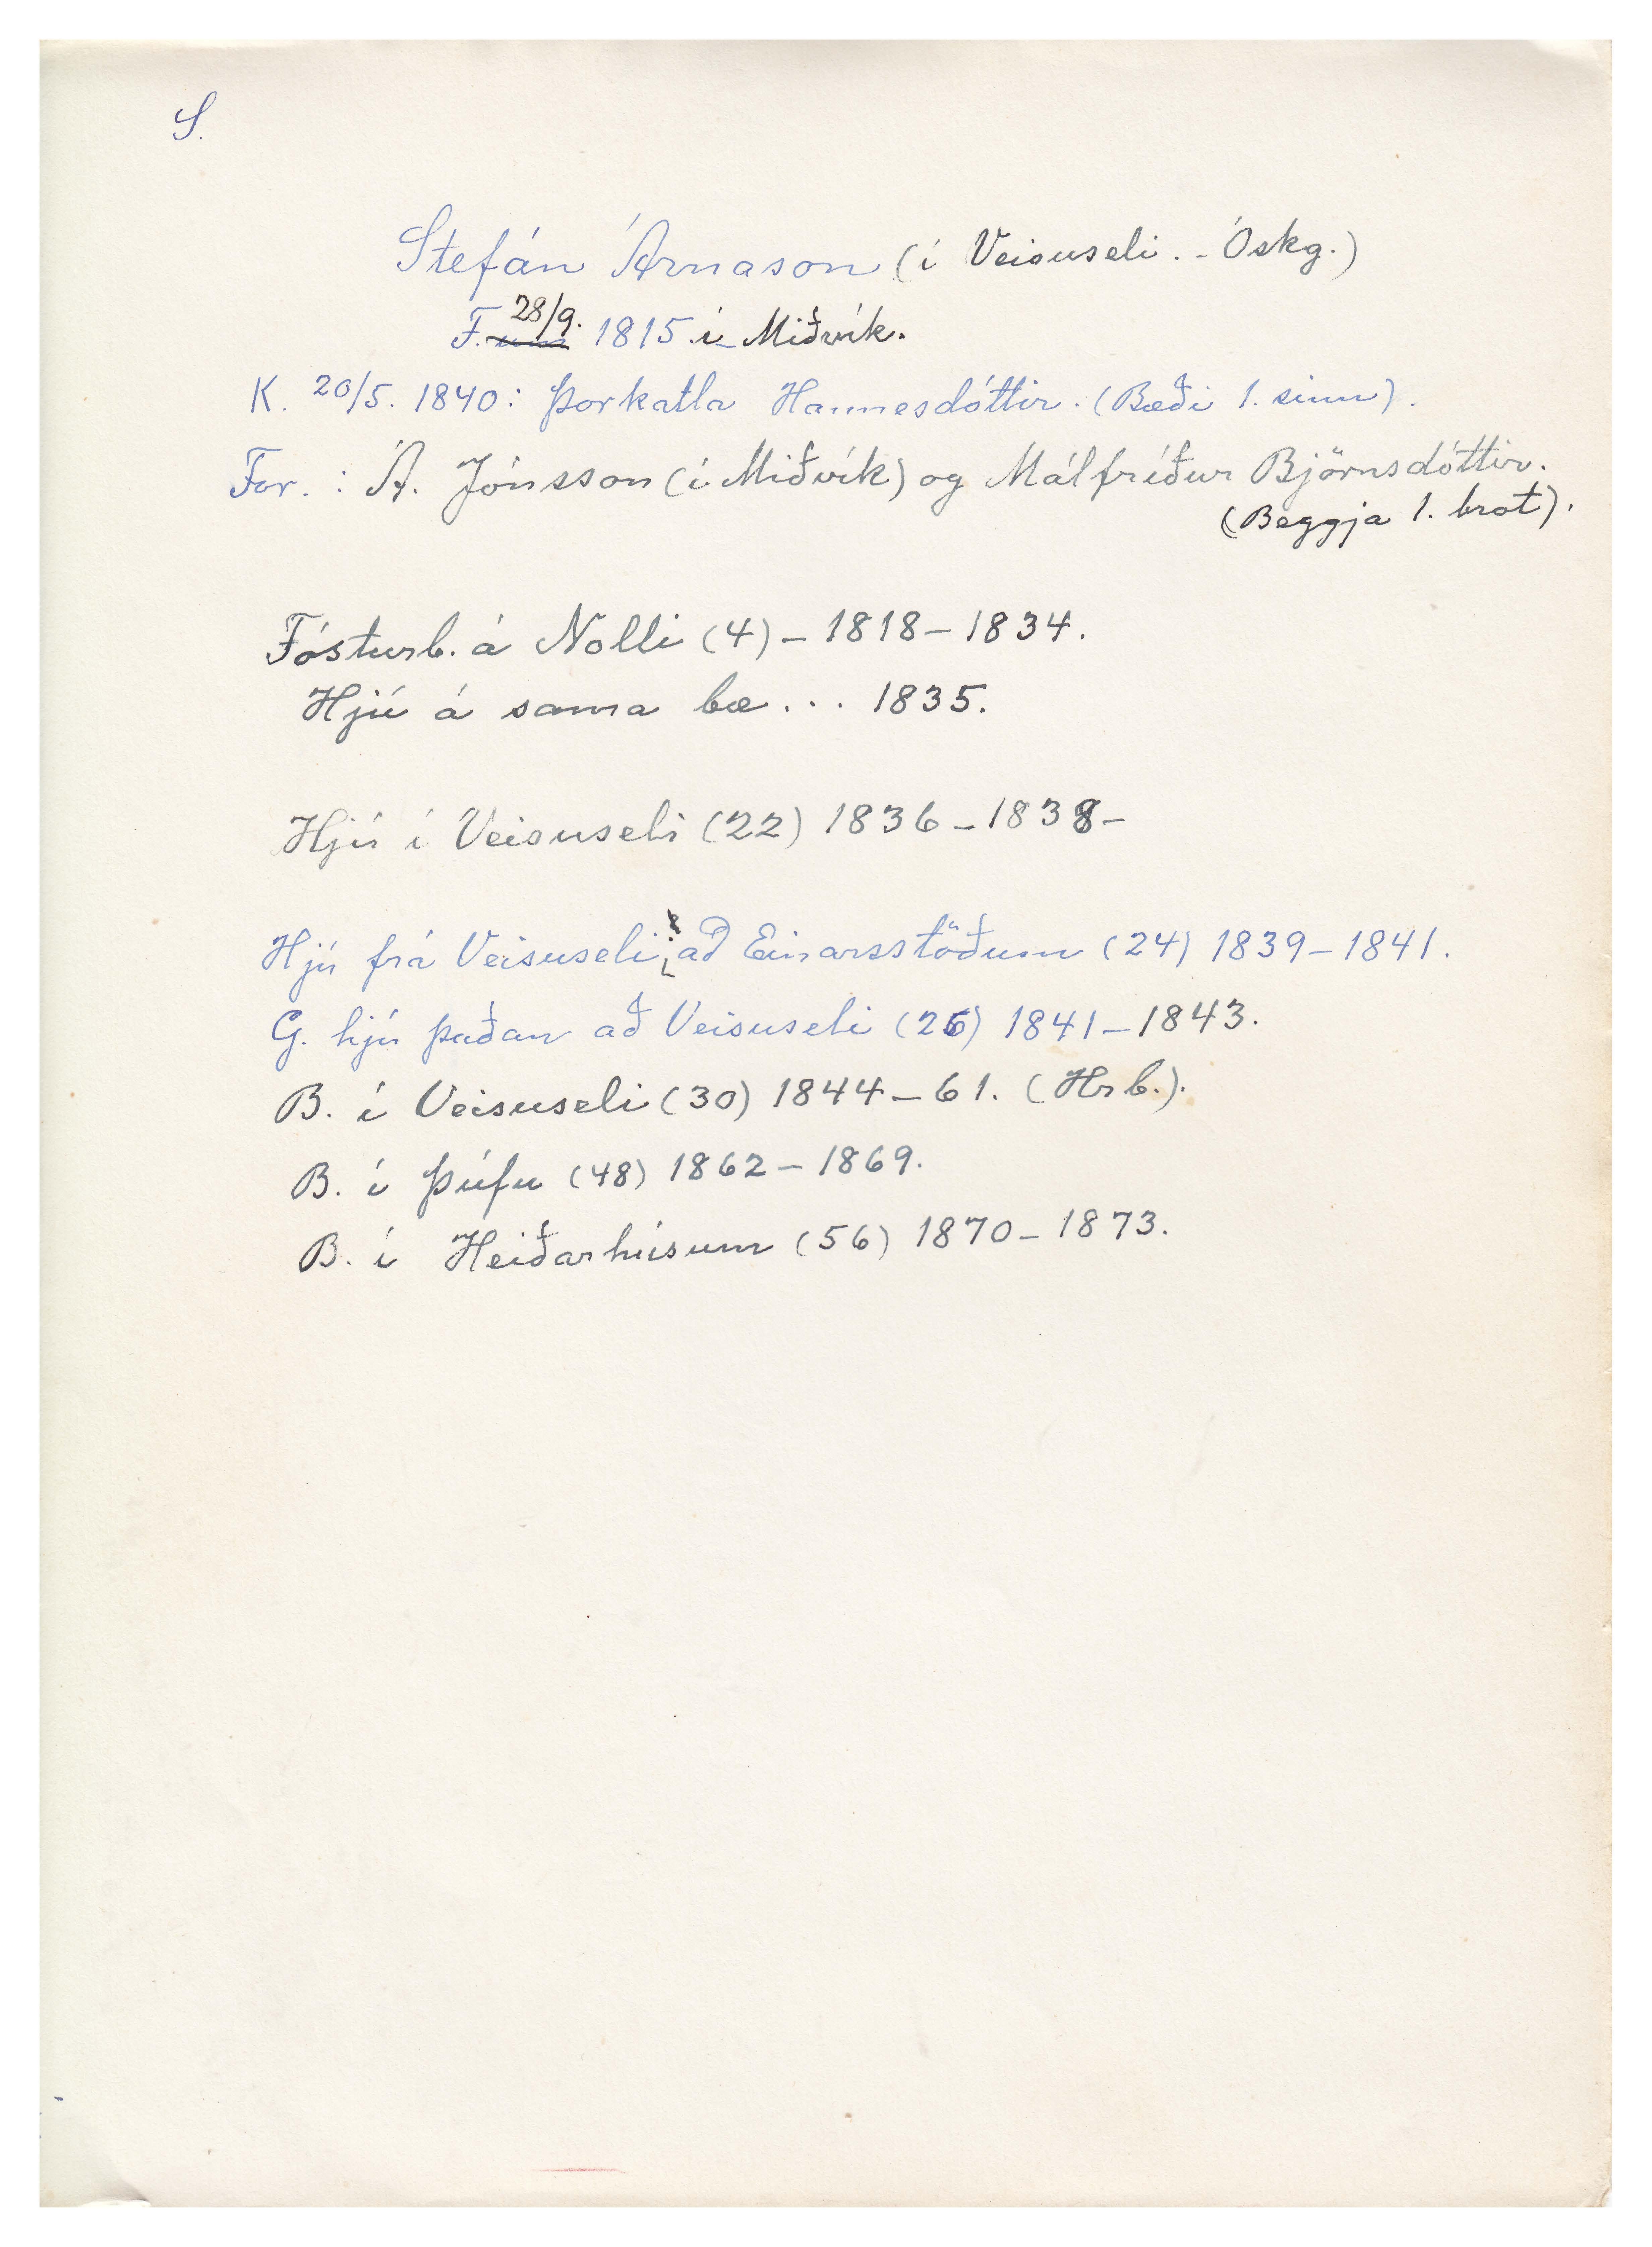 S.
Stefán Árnason (í Veisuseli. - Óskg.)
F. 28/9. 1815 í Miðvík.
K. 20/5. 1840: Þorkatla Hannesdóttir. (Bæði 1. sinn).
For.: Á. Jónsson (í Miðvík) og Málfríður Björnsdóttir.
(Beggja 1. brot).
Fósturb. á Nolli (4) - 1818 - 1834.
Hjú á sama bæ... 1835.
Hjú í Veisuseli (22) 1836 - 1838 -
Hjú frá Veisuseli að Einarsstöðum (24) 1839 - 1841.
G. hjú þaðan að Veisuseli (26) 1841 - 1843.
B. í Veisuseli (30) 1844 - 61. (Hrb.).
B. í Þúfu (48) 1862 - 1869.
B. í Heiðarhúsum (56) 1870 - 1873.